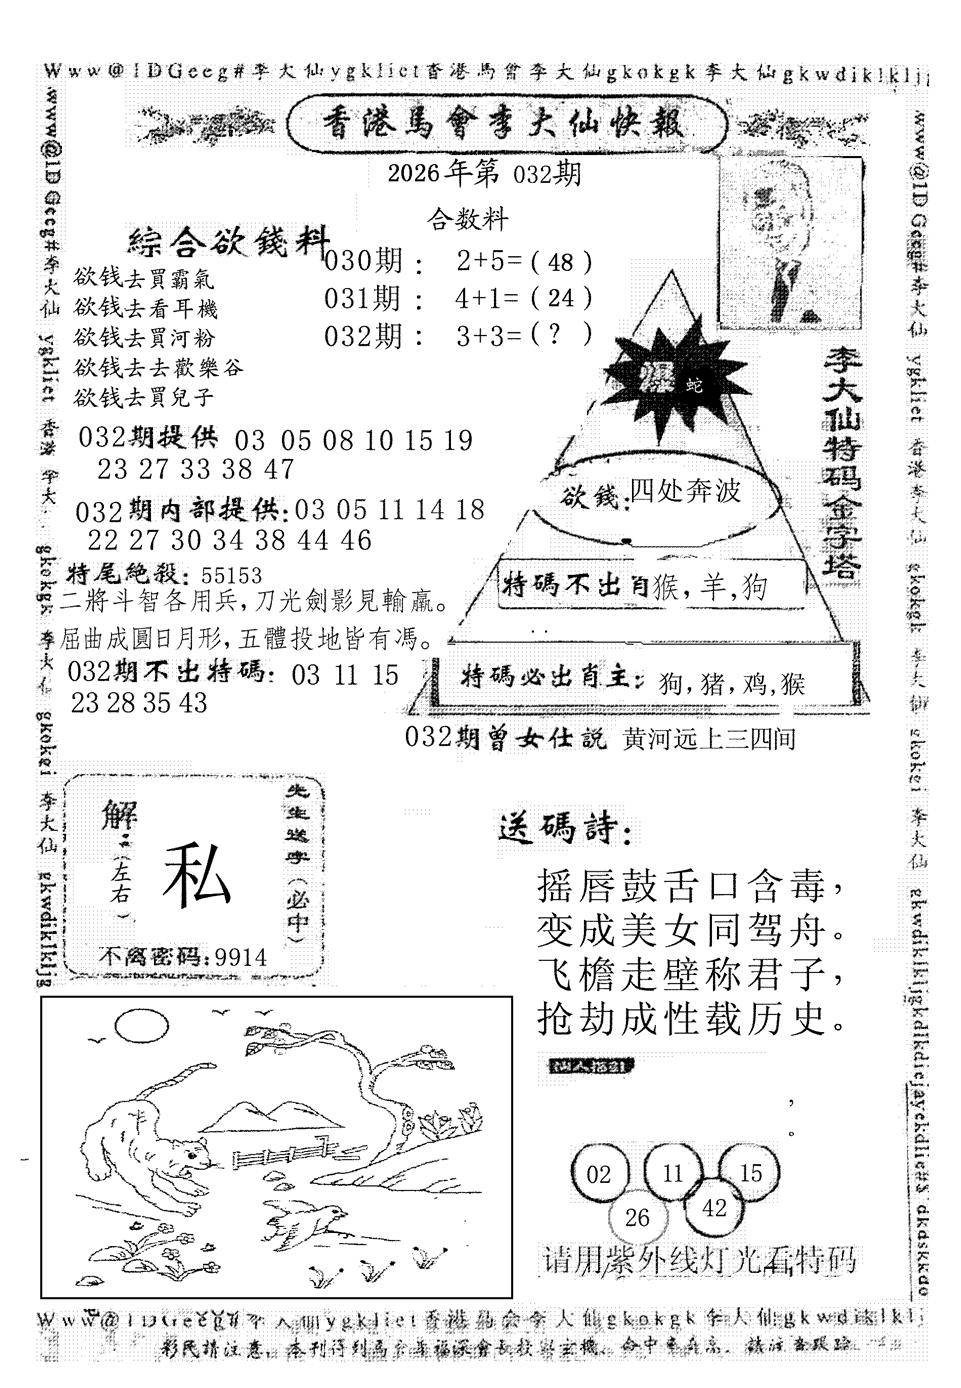 Www@1DGeeg#李大仙ygkliet香港馬會李大仙gkokgk李大仙gkwdiklklj
香港馬會李大仙快報
2026年第 032期
合数料
綜合欲錢料
欲钱去買霸氣
欲钱去看耳機
欲钱去買河粉
欲钱去去歡樂谷
欲钱去買兒子
030期： 2+5=(48)
031期： 4+1=(24)
032期： 3+3=(?)
爆 蛇
李大仙特码金字塔
032期提供 03 05 08 10 15 19
23 27 33 38 47
032期内部提供:03 05 11 14 18
22 27 30 34 38 44 46
特尾絶殺: 55153
二將斗智各用兵,刀光劍影見輸贏。
屈曲成圓日月形,五體投地皆有馮。
032期不出特碼: 03 11 15
23 28 35 43
欲錢:四处奔波
特碼不出肖猴,羊,狗
特碼必出肖主: 狗,猪,鸡,猴
032期曾女仕説 黄河远上三四间
解:
(左右)
私
先生送字(必中)
不离密码:9914
送碼詩:
摇唇鼓舌口含毒,
变成美女同驾舟。
飞檐走壁称君子,
抢劫成性载历史。
,
。
02 11 15
26 42
请用紫外线灯光看特码
www@1DGeeg#李大仙 ygkliet 香港李大仙 gkokgk 李大仙 gkokei 李大仙 gkwdiklkljg
www@1DGeeg#李大仙 ygkliet 香港李大仙 gkokgk 李大仙 gkokei 李大仙 gkwdiklkljgkdlkdiejayekdlie#$ dkdskkdo
Www@1DGeeg#李大仙ygkliet香港馬会李大仙gkokgk李大仙gkwdiklklj